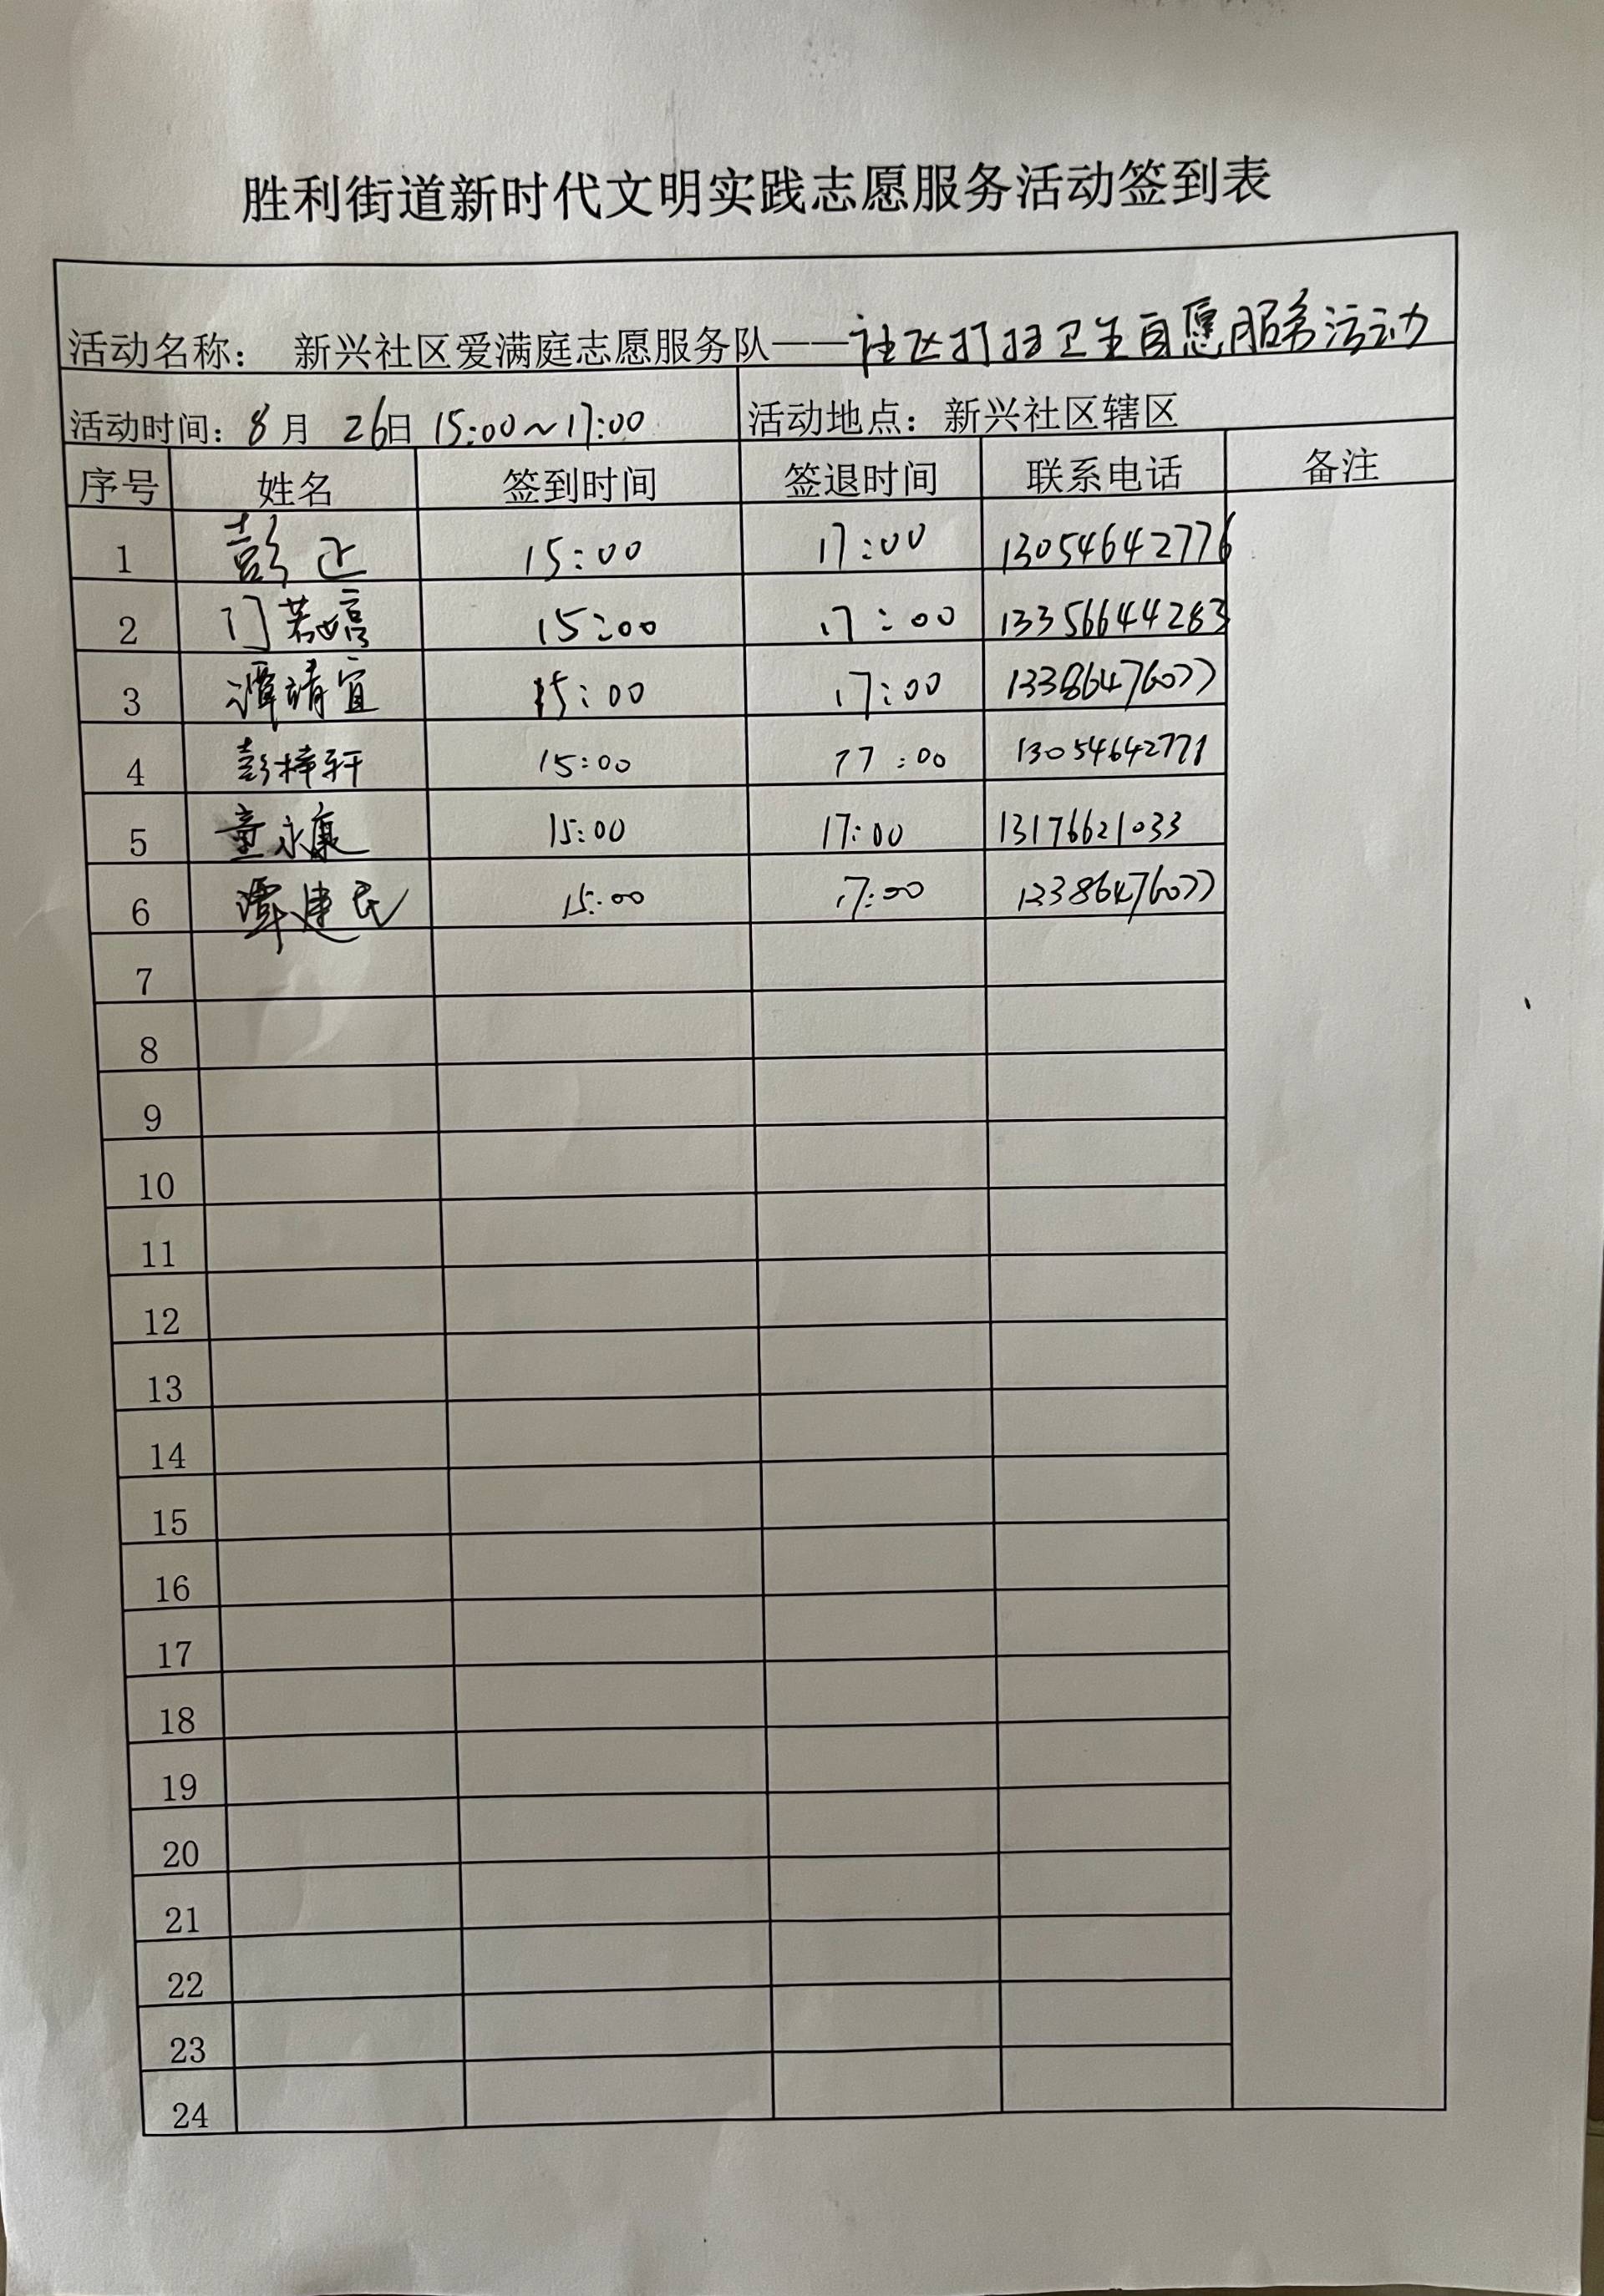 胜利街道新时代文明实践志愿服务活动签到表
活动名称： 新兴社区爱满庭志愿服务队——社区打扫卫生自愿服务活动
活动时间：8月 26日 15:00~17:00 活动地点：新兴社区辖区
序号 姓名 签到时间 签退时间 联系电话 备注
1 彭正 15:00 17:00 13054642776
2 门若嫣 15:00 17:00 13356644283
3 谭靖宜 15:00 17:00 13386476077
4 彭梓轩 15:00 17:00 13054642771
5 童永康 15:00 17:00 13176621033
6 谭建民 15:00 17:00 13386476077
7
8
9
10
11
12
13
14
15
16
17
18
19
20
21
22
23
24